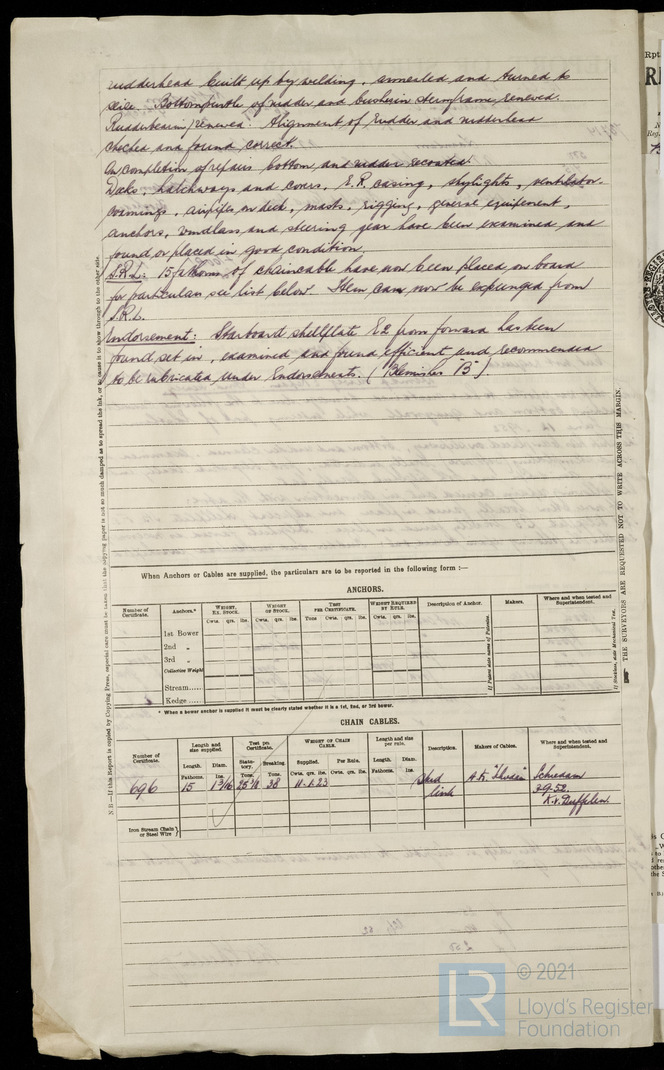 rudderhead built up by welding, annealed and turned to
size. Bottompintle of rudder and bush in sternframe renewed.
Rudderbearing renewed. Alignment of rudder and rudderhead
checked and found correct.
On completion of repairs bottom and rudder recoated.
Decks, hatchways and covers, E.R. casing, skylights, ventilator-
coamings, airpipes on deck, masts, rigging, general equipment,
anchors, windlass and steering gear have been examined and
found or placed in good condition.
S.R.L: 15 fathoms of chaincable have now been placed on board
for particulars see list below. Item can now be expunged from
S.R.L.
Endorsement: Starboard shellplate E2 from forward has been
found set in, examined and found efficient and recommended
to be indicated under Endorsements. (Blemishes "B").
When Anchors or Cables are supplied, the particulars are to be reported in the following form :—
ANCHORS.
Number of Certificate. Anchors.* Weight, Ex. Stock. Weight of Stock. Test per Certificate. Weight Required by Rule. Description of Anchor. Makers. Where and when tested and Superintendent.
Cwts. qrs. lbs. Cwts. qrs. lbs. Tons Cwts. qrs. lbs. Cwts. qrs. lbs.
1st Bower
2nd „
3rd „
Collective Weight
Stream.....
Kedge .....
* When a bower anchor is supplied it must be clearly stated whether it is a 1st, 2nd, or 3rd bower.
CHAIN CABLES.
Number of Certificate. Length and size supplied. Test per Certificate. Weight of Chain Cable. Length and size per rule. Description. Makers of Cables. Where and when tested and Superintendent.
Length. Diam. Statutory. Breaking. Supplied. Per Rule. Length. Diam.
Fathoms. Ins. Tons. Tons. Cwts. qrs. lbs. Cwts. qrs. lbs. Fathoms. Ins.
696 15 1 3/16 38 11-1-23 Stud link Schiedam
Iron Stream Chain or Steel Wire
N.B.—If this Report is copied by Copying Press, especial care must be taken that the copying paper is not so much damped as to spread the ink, or to cause it to show through to the other side.
THE SURVEYORS ARE REQUESTED NOT TO WRITE ACROSS THIS MARGIN.
LR
© 2021
Lloyd's Register
Foundation